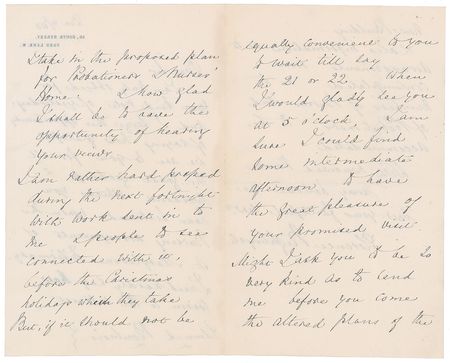 I take in the proposed plan
for Probationers & Nurses'
Home. & how glad
I shall be to have the
opportunity of hearing
your views.
I am rather hard pressed
during the next fortnight
with work sent in to
me & people to see
connected with it,
before the Christmas
holidays which they take
But, if it should not be
equally convenient to you
to wait till say
the 21 or 22, when
I would gladly see you
at 5 o'clock, I am
sure I could find
some intermediate
afternoon to have
the great pleasure of
your promised visit.
Might I ask you to be so
very kind as to send
me before you come
the altered plans of the